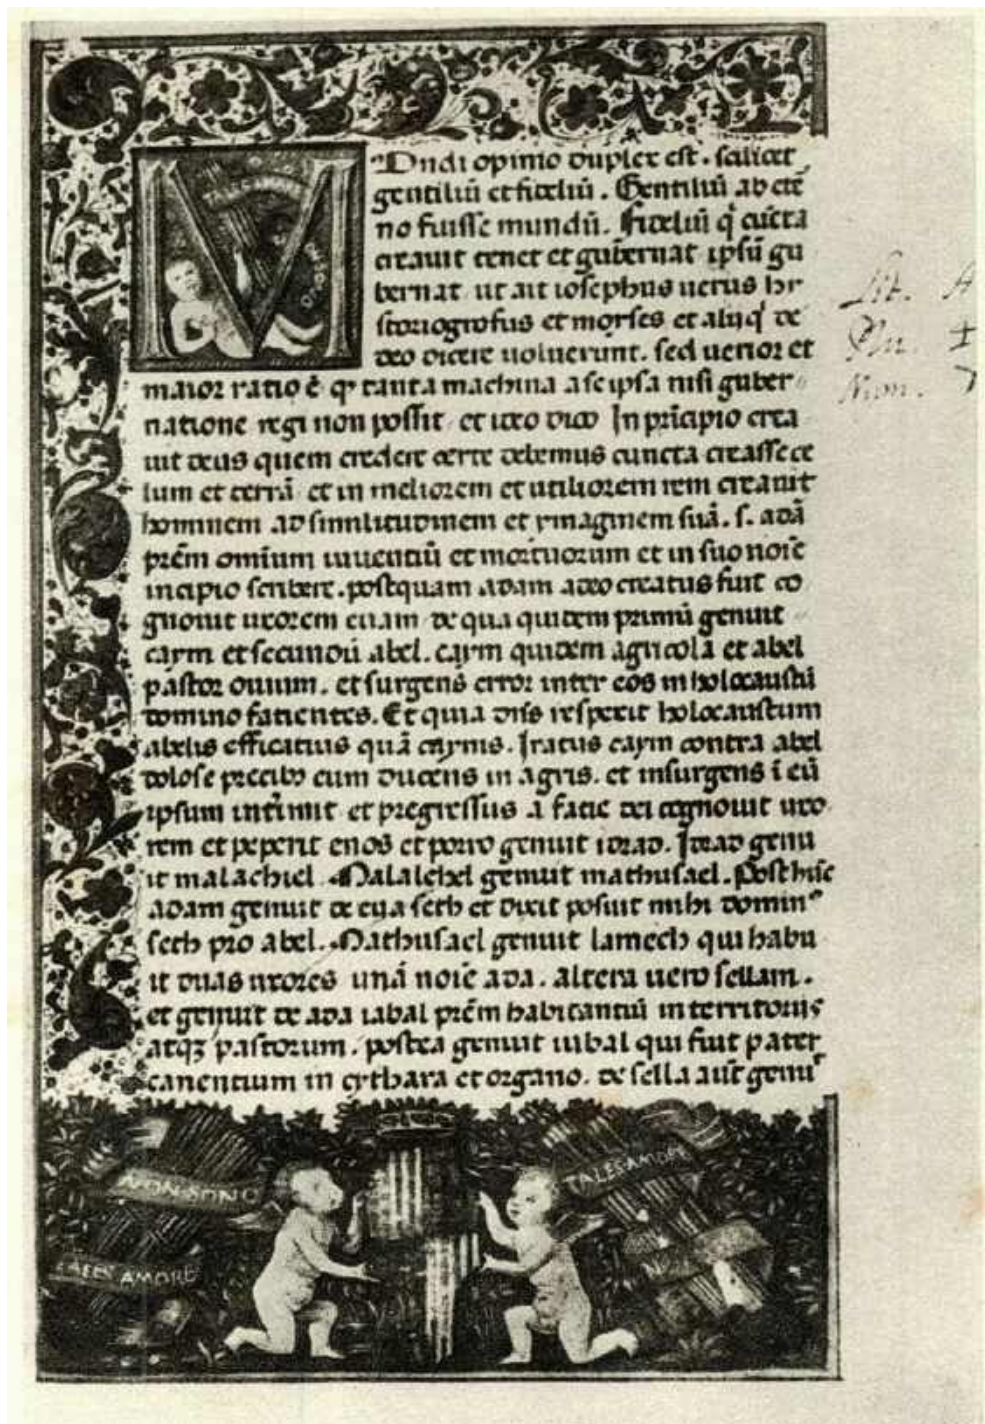 MUndi opinio duplex est. scilicet
gentiliũ et fideliũ. Gentiliũ ab etẽ
no fuisse mundũ. Fideliũ q̃ cũcta
creauit tenet et gubernat ipsũ gu
bernat ut ait iosephus uerus hy
storiogrofus et moyses et aliq̃ de
deo dicere uoluerunt. sed uerior et
maior ratio ẽ qꝛ tanta machina a se ipsa nisi guber
natione regi non possit et ideo dico In prĩcipio crea
uit deus quem credere certe debemus cuncta creasse ce
lum et terrã et in meliorem et utiliorem rem creauit
hominem ad similitudinem et ymaginem suã. s. adã
prẽm omnium uiuentiũ et mortuorum et in suo noĩe
incipio scribere. postquam adam a deo creatus fuit co
gnouit uxorem euam de qua quidem primũ genuit
caym et secundũ abel. caym quidem agricolã et abel
pastor ouium. et surgens error inter eos in holocaustũ
domino fatientes. Et quia dñs respexit holocaustum
abelis efficatius quã caymis. Iratus caym contra abel
dolose precibꝫ eum ducens in agris. et insurgens ĩ eũ
ipsum intĩmit et pregressus a facie dei cognouit uxo
rem et peperit enos et porro genuit idrad. Idrad genu
it malachiel. Malalehel genuit mathusael. Post hisc
adam genuit de eua seth et dixit posuit mihi dominꝰ
seth pro abel. Mathusael genuit lamech qui habu
it duas uxores unã noĩe ada. altera uero sellam.
et genuit de ada iabal prẽm habitantiũ in territoriis
atqꝫ pastorum. postea genuit iubal qui fuit pater
canentium in cythara et organo. de sella aũt genuꝰ
NON·SONO
TALES·AMORE
TALES AMORE
Lit. A
Plu.
Num.